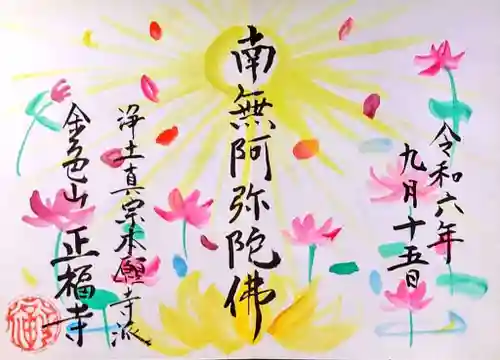 令和六年
九月十五日
南無阿弥陀佛
浄土真宗本願寺派
金色山
正福寺